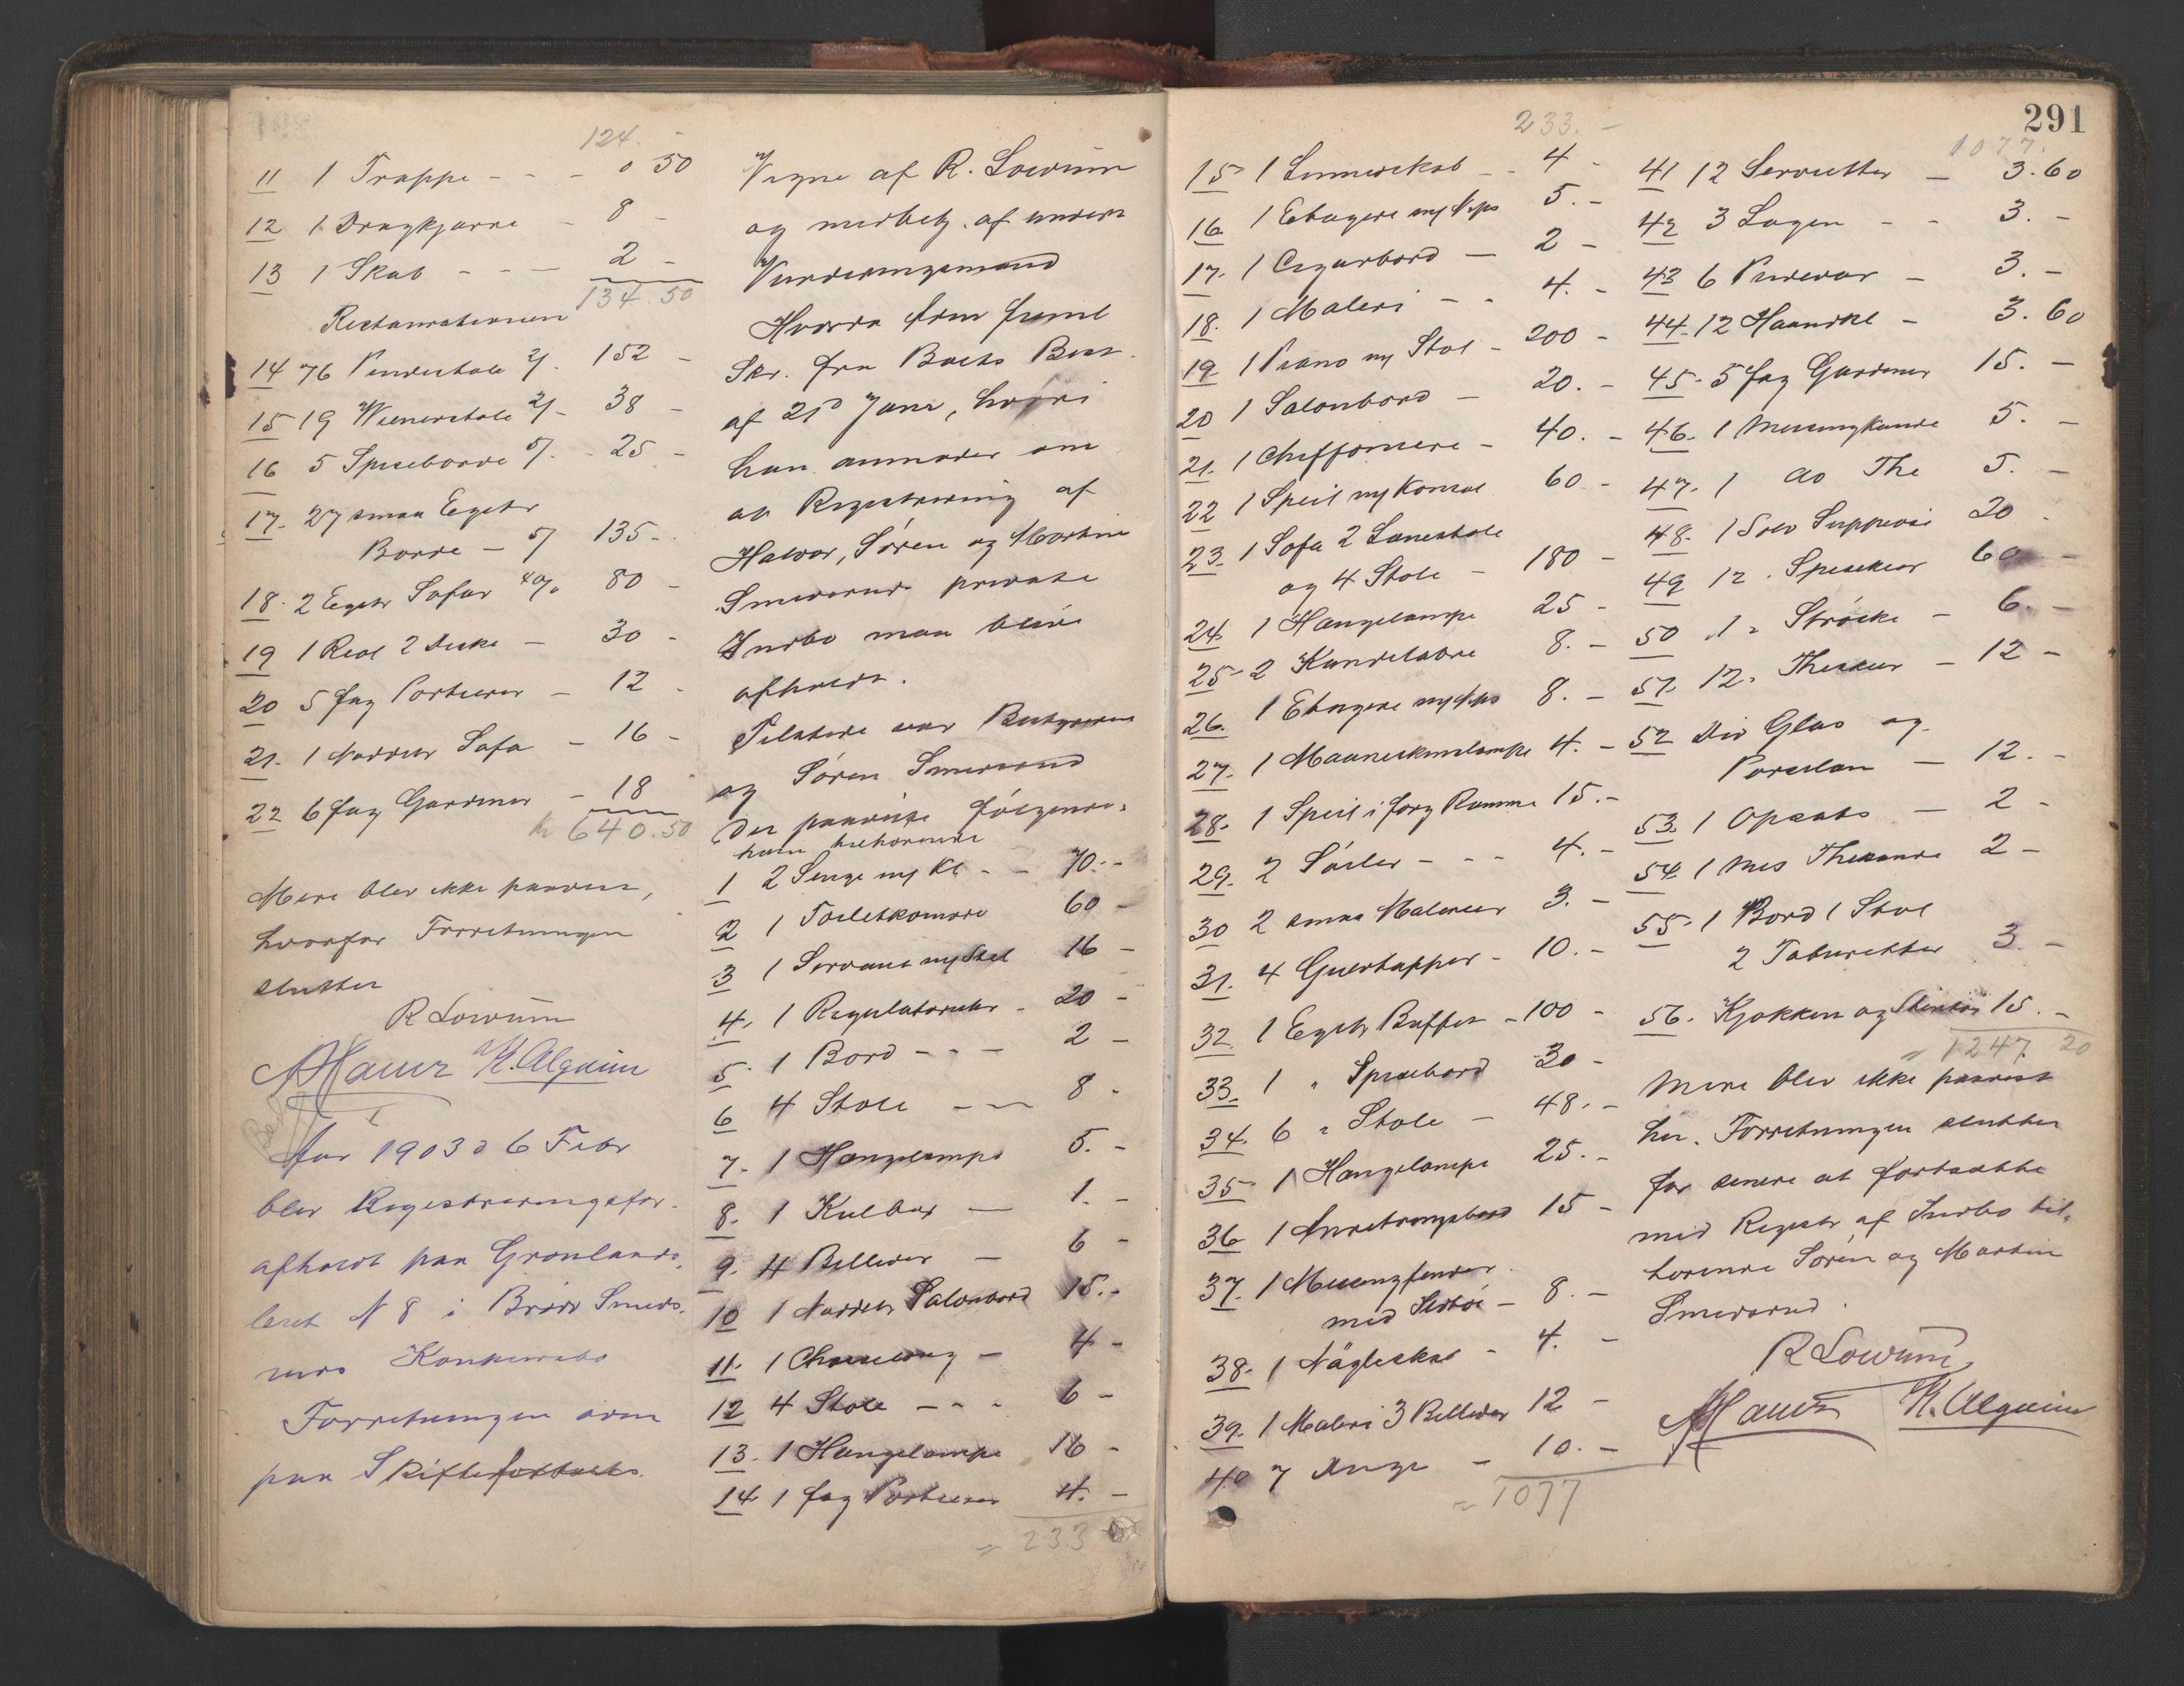 124. -
11 1 Trappe - - - 0 50
12 1 Dragkjærre - 8 -
13 1 Skab - - - 2 -
134.50
Restaurationen
14 76 Pindestole 2/- 152 -
15 19 Wienerstole 2/- 38 -
16 5 Spiseborde 5/- - 25 -
17. 27 smaa Egetr
Borde - 5/ 135 -
18. 2 Egetr Sofaer 40/0 80 -
19 1 Reol 2 Diske - 30 -
20 5 fag Portierer - 12 -
21. 1 Nøddetr Sofa - 16 -
22 6 fag Gardiner - 18
kr 640.50
Mere blev ikke paavist,
hvorfor Forretningen
sluttet
R Lowum
K. Alguim
Aar 1903 d 6 Febr
blev Registreringsfor.
afholdt paa Grønlands,
leret N 8 i Brødr Smeds,
ruds Konkursbo
Forretningen adm
paa Skifte
Vegne af R. Lowum
og medbetj. af undert
Vurderingsmænd
Hvorda adm freml
Skr. fra Boets Best.
af 21d Janr, hvori
han anmoder om
at Registrering af
Halvor, Søren og Martin
Smedsruds private
Indbo maa blive
afholdt.
Tilstede var Bestyreren
og Søren Smedsrud
Der paaviste følgende
ham tilhørende
1 2 Senge m/ Kl - - 70. -
2 1 Toiletkomode 60 -
3 1 Servant m/ Stel 16 -
4. 1 Regulatoruhr - 20 -
5. 1 Bord - - - 2 -
6 4 Stole - - 8 -
7. 1 Hængelampe 5. -
8. 1 Kulbox - 1. -
9. 4 Billeder - 6 -
10 1 Nøddetr Salonbord 15. -
11. 1 Chaiselong - 4 -
12 4 Stole - - - 6 -
13. 1 Hængelampe 16 -
14 1 fag Portierer 4. -
= 233
291
233. -
15 1 Linnedskab - - 4 -
16 1 Etagere m/ Nips 5. -
17. 1 Cigarbord - 2 -
18. 1 Maleri - - 4. -
19. 1 Piano m/ Stol - 200 -
20 1 Salonbord - 20. -
21. 1 Chiffoniere - 40. -
22 1 Speil m/ Konsol 60 -
23. 1 Sofa 2 Lænestole
og 4 Stole - 180 -
24. 1 Hængelampe 25 -
25 2 Kandelabre 8. -
26. 1 Etagere m/ Nips 8. -
27. 1 Maaneskinslampe 4. -
28. 1 Speil i forg Ramme 15. -
29. 2 Søiler - - - 4. -
30 2 smaa Malerier 3. -
31. 4 Gulvtæpper - 10. -
32. 1 Egetr Buffet - 100 -
33. 1 " Spisebord 30 -
34. 6 " Stole - 48. -
35 1 Hængelampe 25. -
36 1 Anretningsbord 15 -
37. 1 Messingfender
med Ildtøi - 8. -
38. 1 Nøgleskab - 4. -
39. 1 Maleri 3 Billeder 12 -
40 7 Duge - 10. -
= 1077
1077.
41 12 Servietter - 3.60
42 3 Lagen - - 3. -
43 6 Pudevar - 3. -
44. 12 Haandkl - 3.60
45. 5 fag Gardiner 15. -
46. 1 Messingkande 5. -
47. 1 do The 5. -
48. 1 Sølv Suppeøse 20 -
49 12 " Spiseskeer 60 -
50 1 " Strøske - 6. -
51. 12 " Theskeer - 12 -
52 Div Glas og
Porcelæn - 12. -
53. 1 Opsats - 2 -
54. 1 Mes Thekande 2 -
55. 1 Bord 1 Stol
2 Taburetter 3. -
56. Kjøkken og Stentøi 15. -
= 1247 20
Mere blev ikke paavist
her. Forretningen sluttet
for senere at fortsætte
med Registr af Indbo til,
hørende Søren og Martin
Smedsrud.
R Lowum
K. Alguim